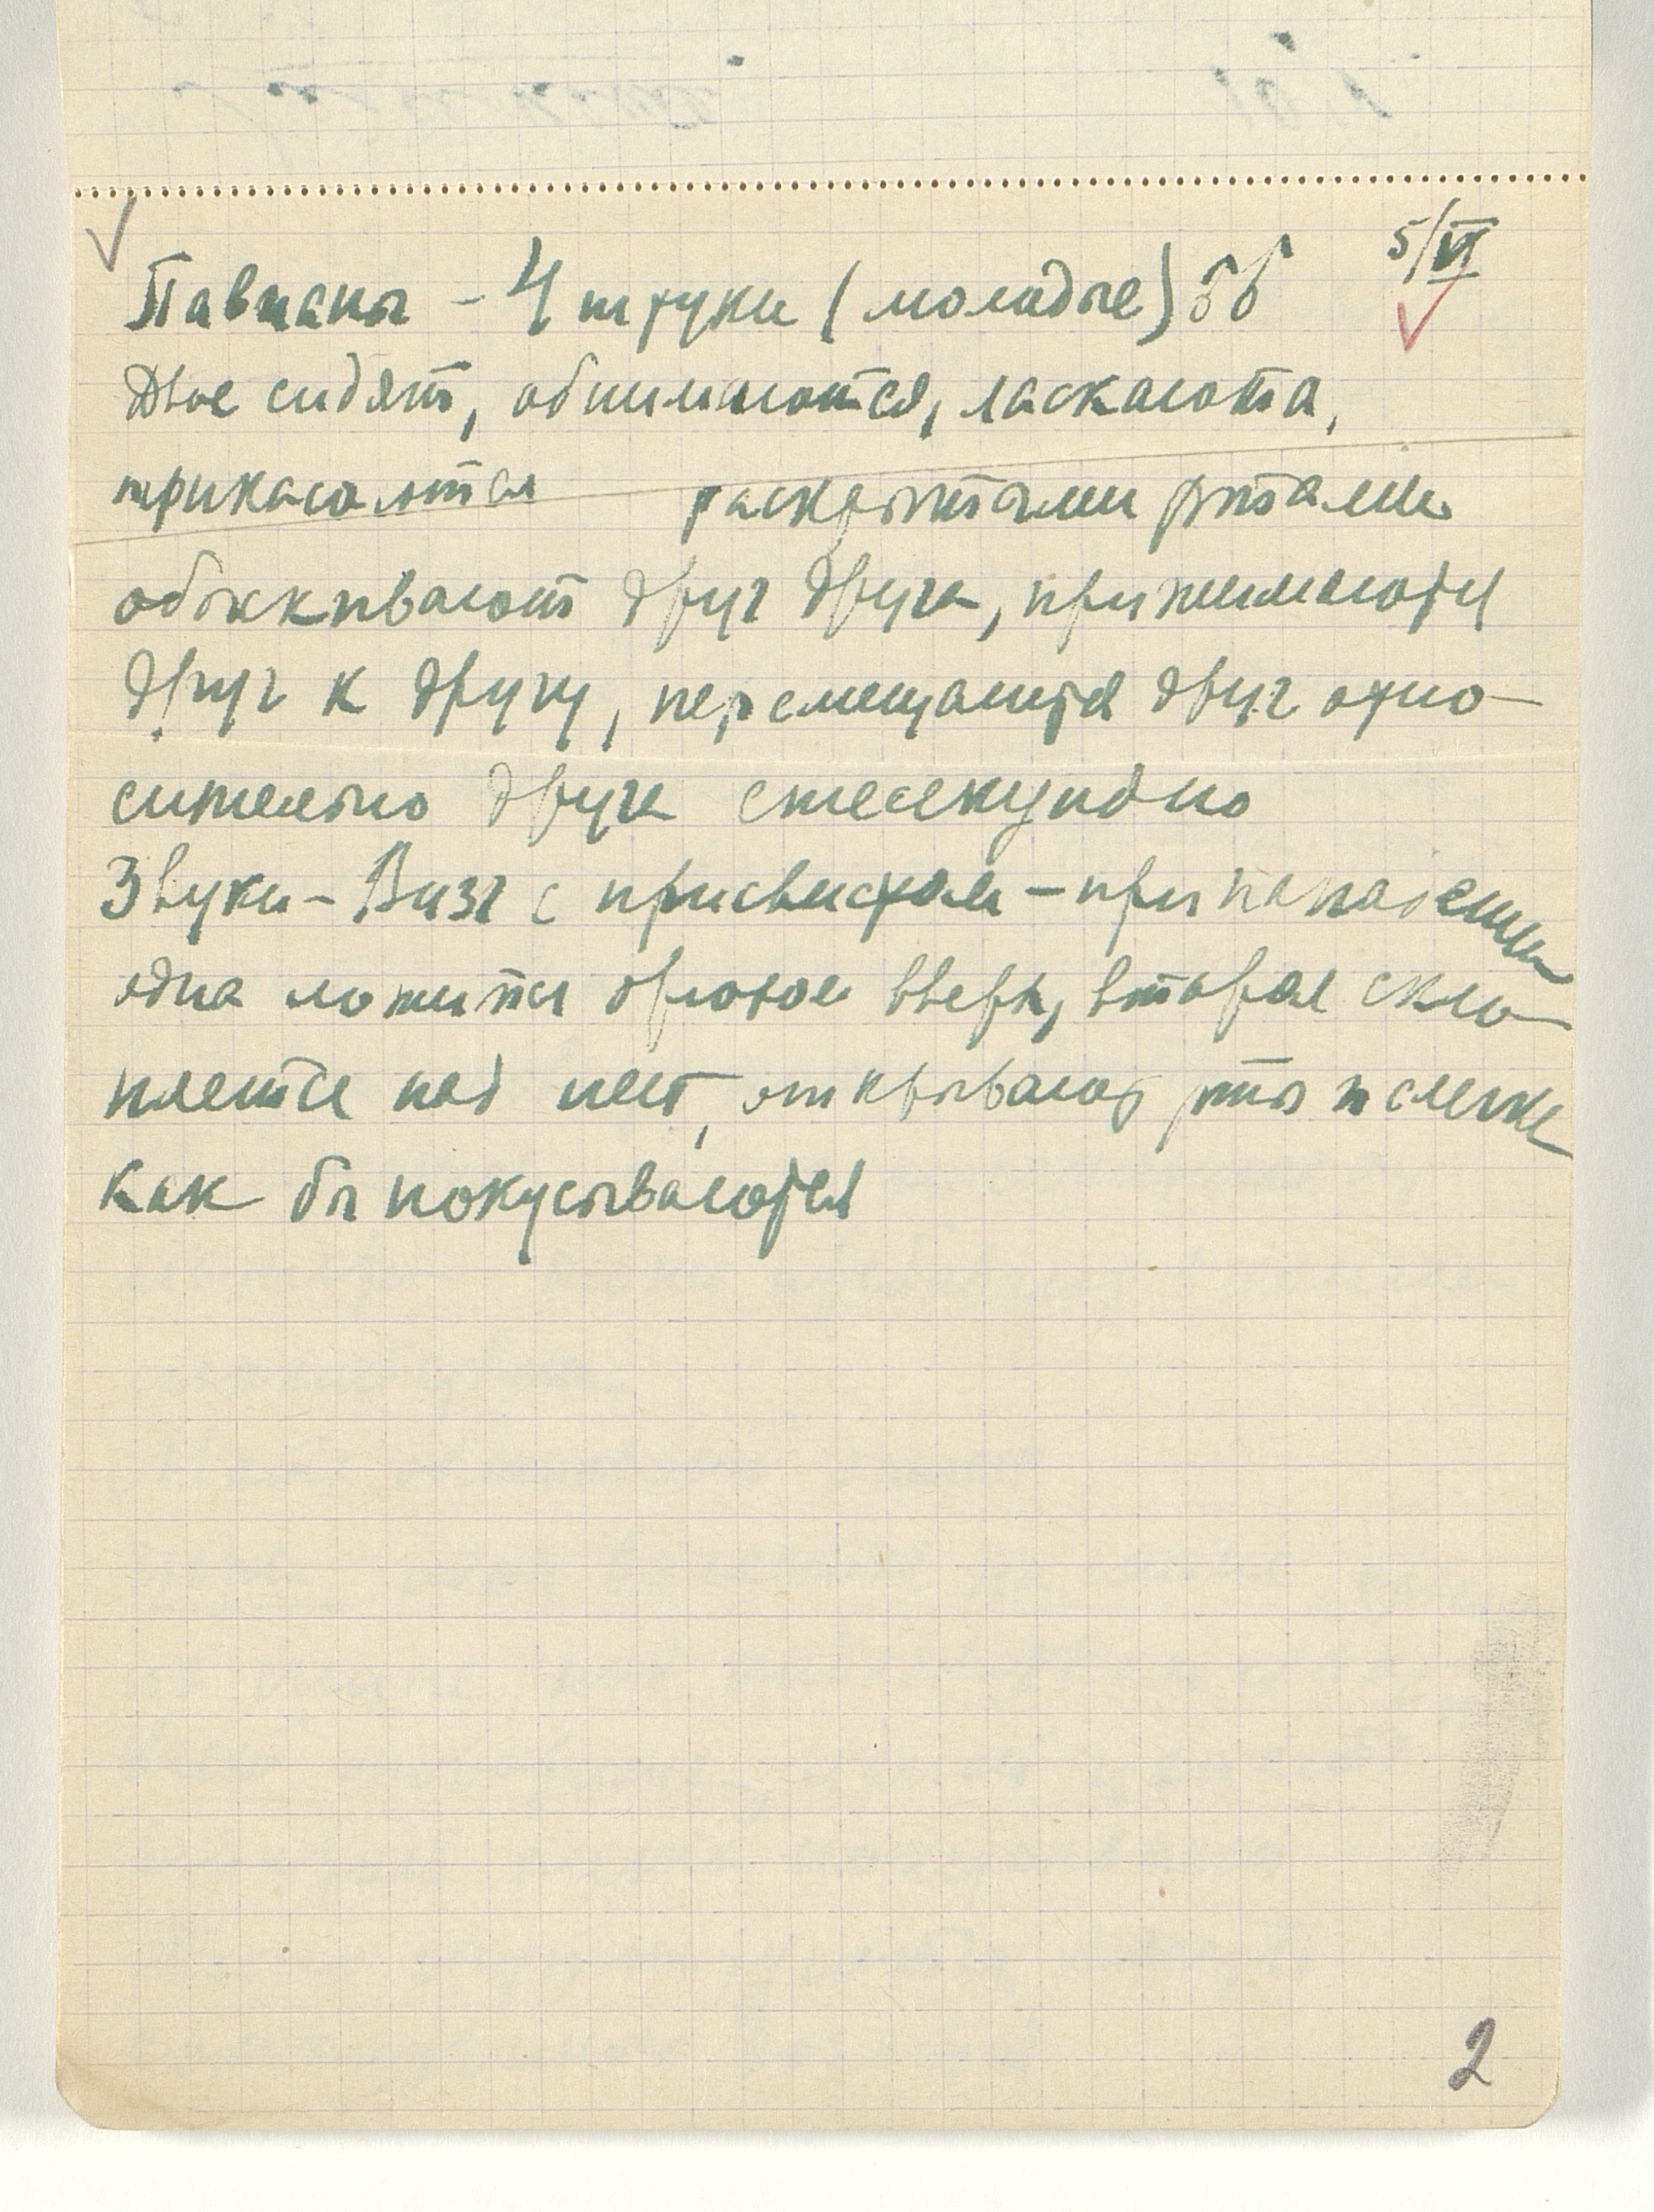 5/VI
Павианы - 4 штуки (молодые) ♂♂
Двое сидят, обнимаются, ласкаются,
прикасаются раскрытыми ртами
друг друга, прижимаются
друг к другу, перемещаются друг отно-
сительно друга ежесекундно
Звуки - Визг с присвистом - при нападении
одна ложится брюхом вверх, вторая скло-
няется над ней, открывают рты и слегка
как бы покусываются
2